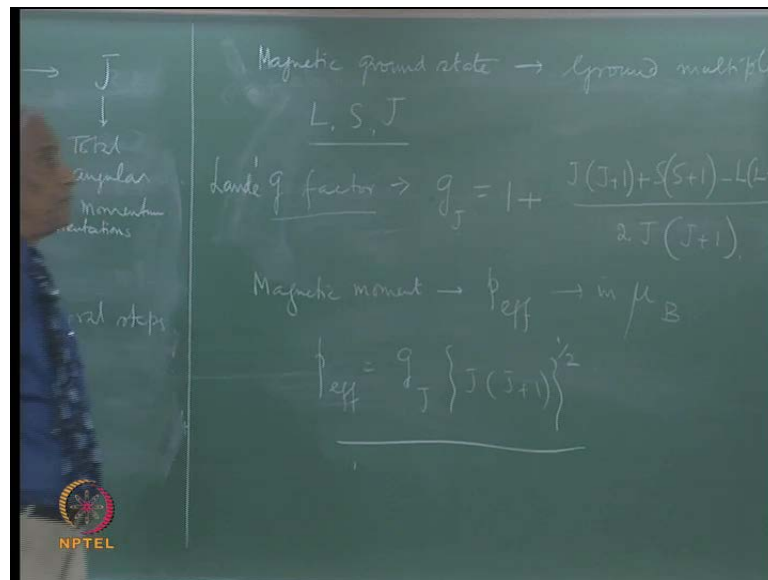 → J
↓
Total
angular
momentum
entations
ral steps
Magnetic ground state → Ground multipl
L, S, J
Landé g factor → g_J = 1 + J(J+1)+S(S+1)-L(L / 2J(J+1)
Magnetic moment → p_eff → in μ_B
p_eff = g_J {J(J+1)}^1/2
NPTEL